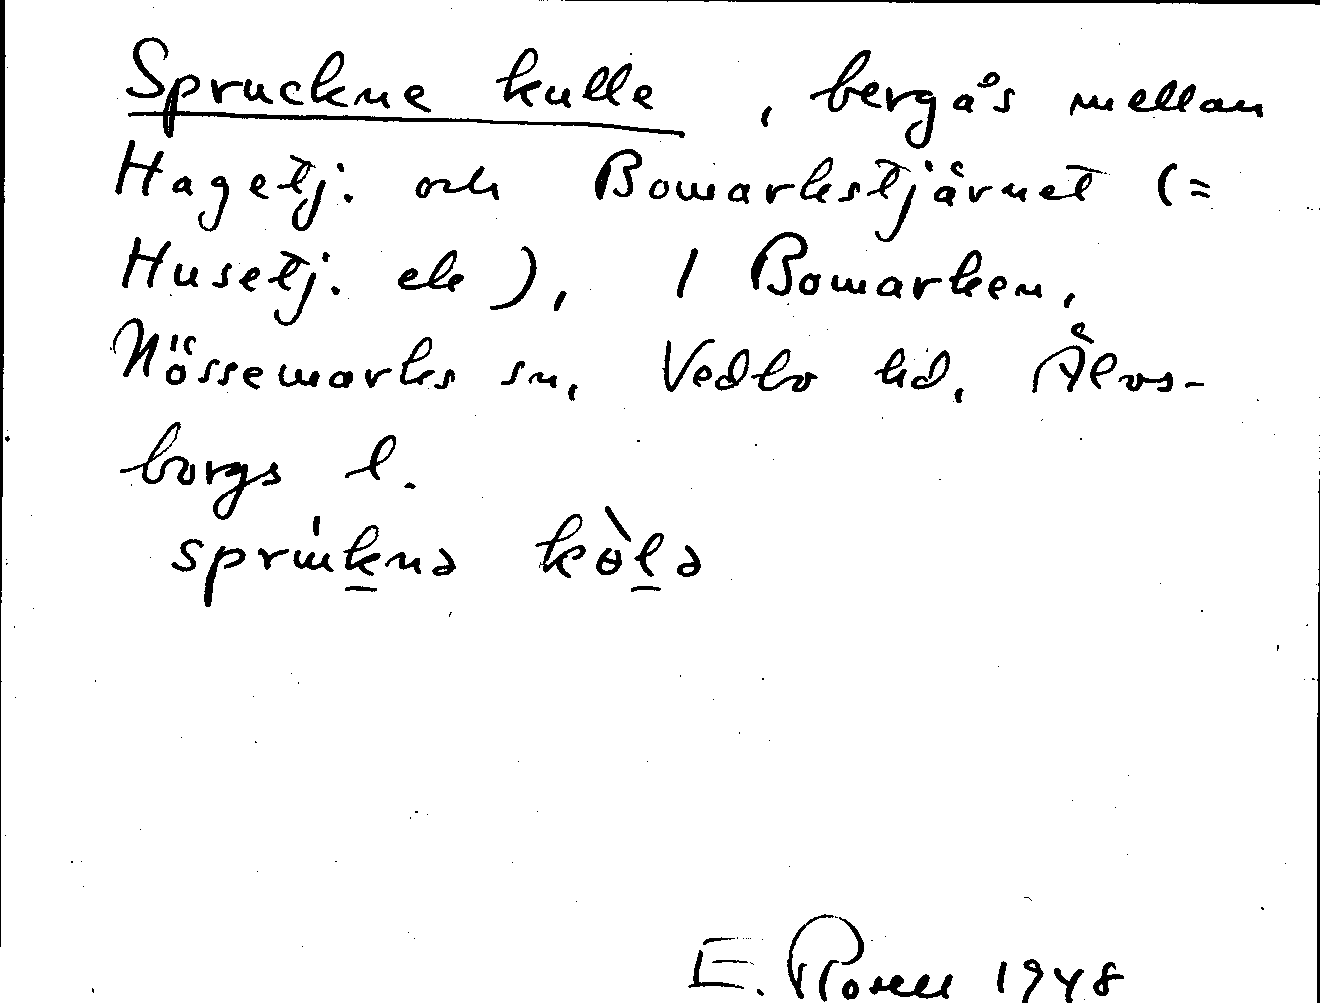 Spruckne kulle, bergås mellan
Hagetj. och Bomarkstjärnet (=
Husetj. ek), / Bomarken,
Nössemarks sn, Vedbo hd, Älvs-
borgs l.
sprúk̲nə kòl̲ə
E. Rosell 1948